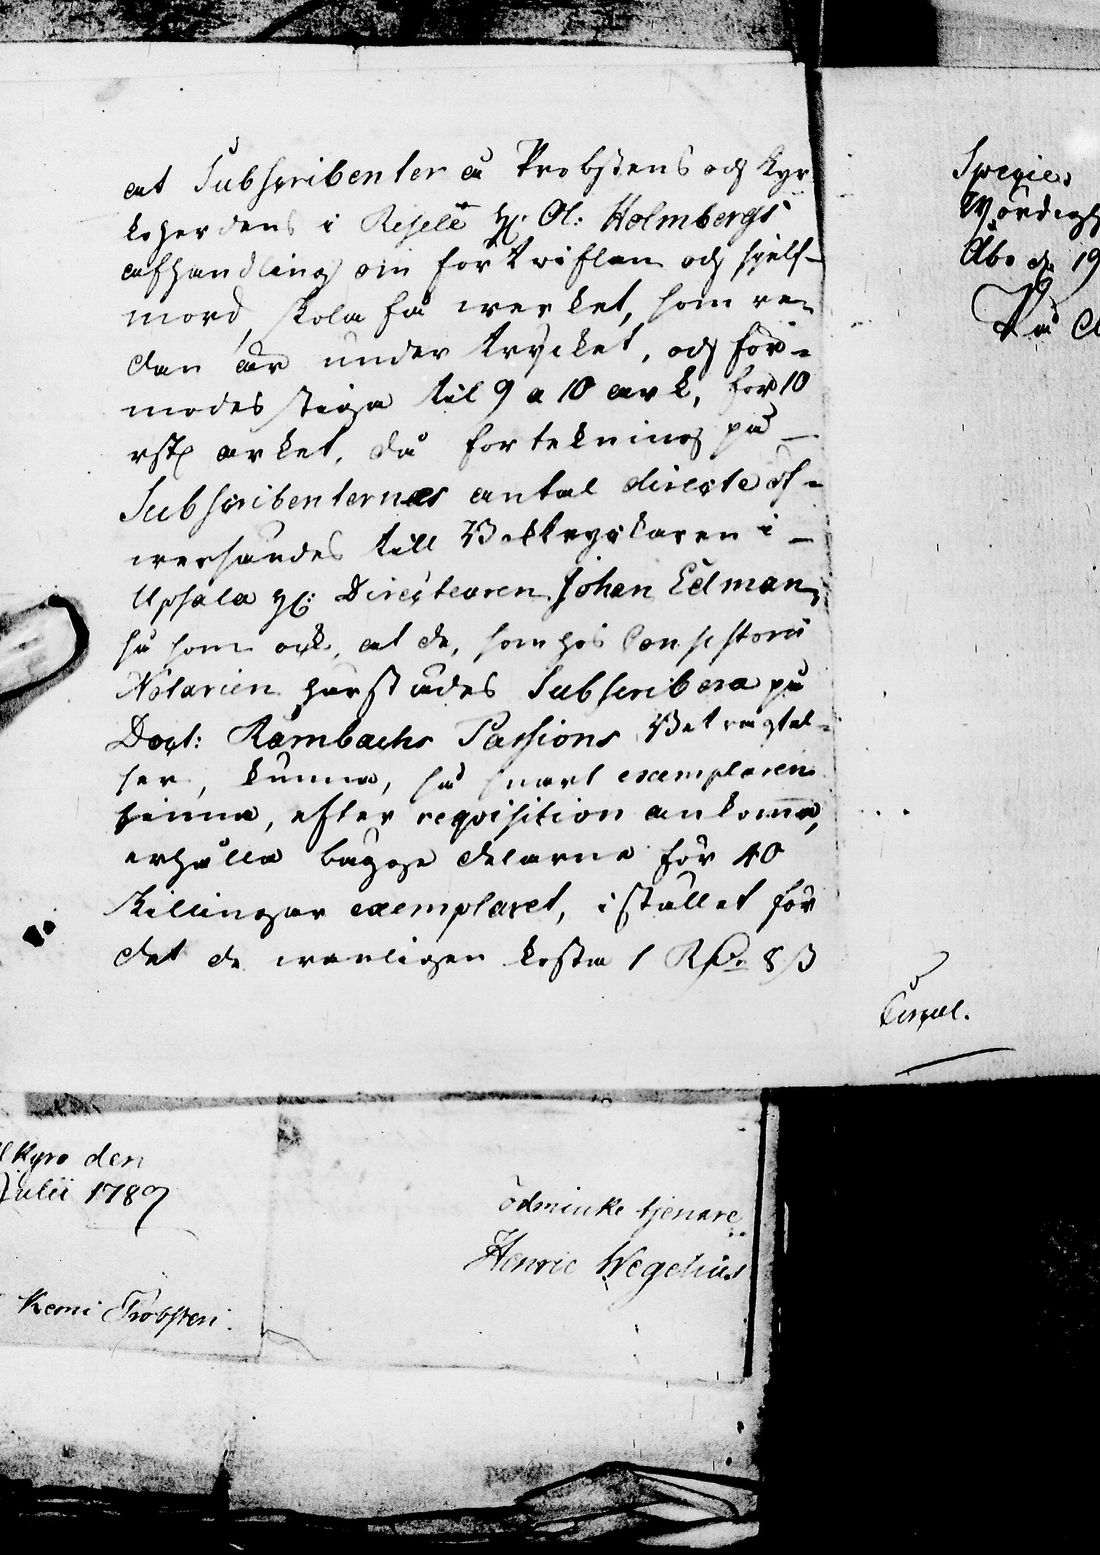 at Subscribenter å Probstens och Kyr
koherdens i Åsele Hr Ol: Holmbergs
afhandling om förtviflan och sjelf-
mord, skola få wercket, som re-
dan är under trycket, och för-
modes stiga til 9 a 10 ark, för 10
rst arket, då förtekning på
Subscribenternas antal directe öf-
wersändes till Boktryckaren i
Upsala Hr Directeuren Johan Edman,
så som ock, at de, som hos Consistorii
Notarien härstädes Subscribera på
Doct: Rambachs Passions Betragtel-
ser, kunna, så snart exemplaren
hinna, efter reqvisition ankomma,
erhålla bägge delarne för 40
skillingar exemplaret, i stället för
det de wanligen kosta 1 Rd 8 ß
Species
Åbo d. 19
kyro den
Julii 1789
Kemi Probsten.
ödmiuke tjenare
Henric Wegelius